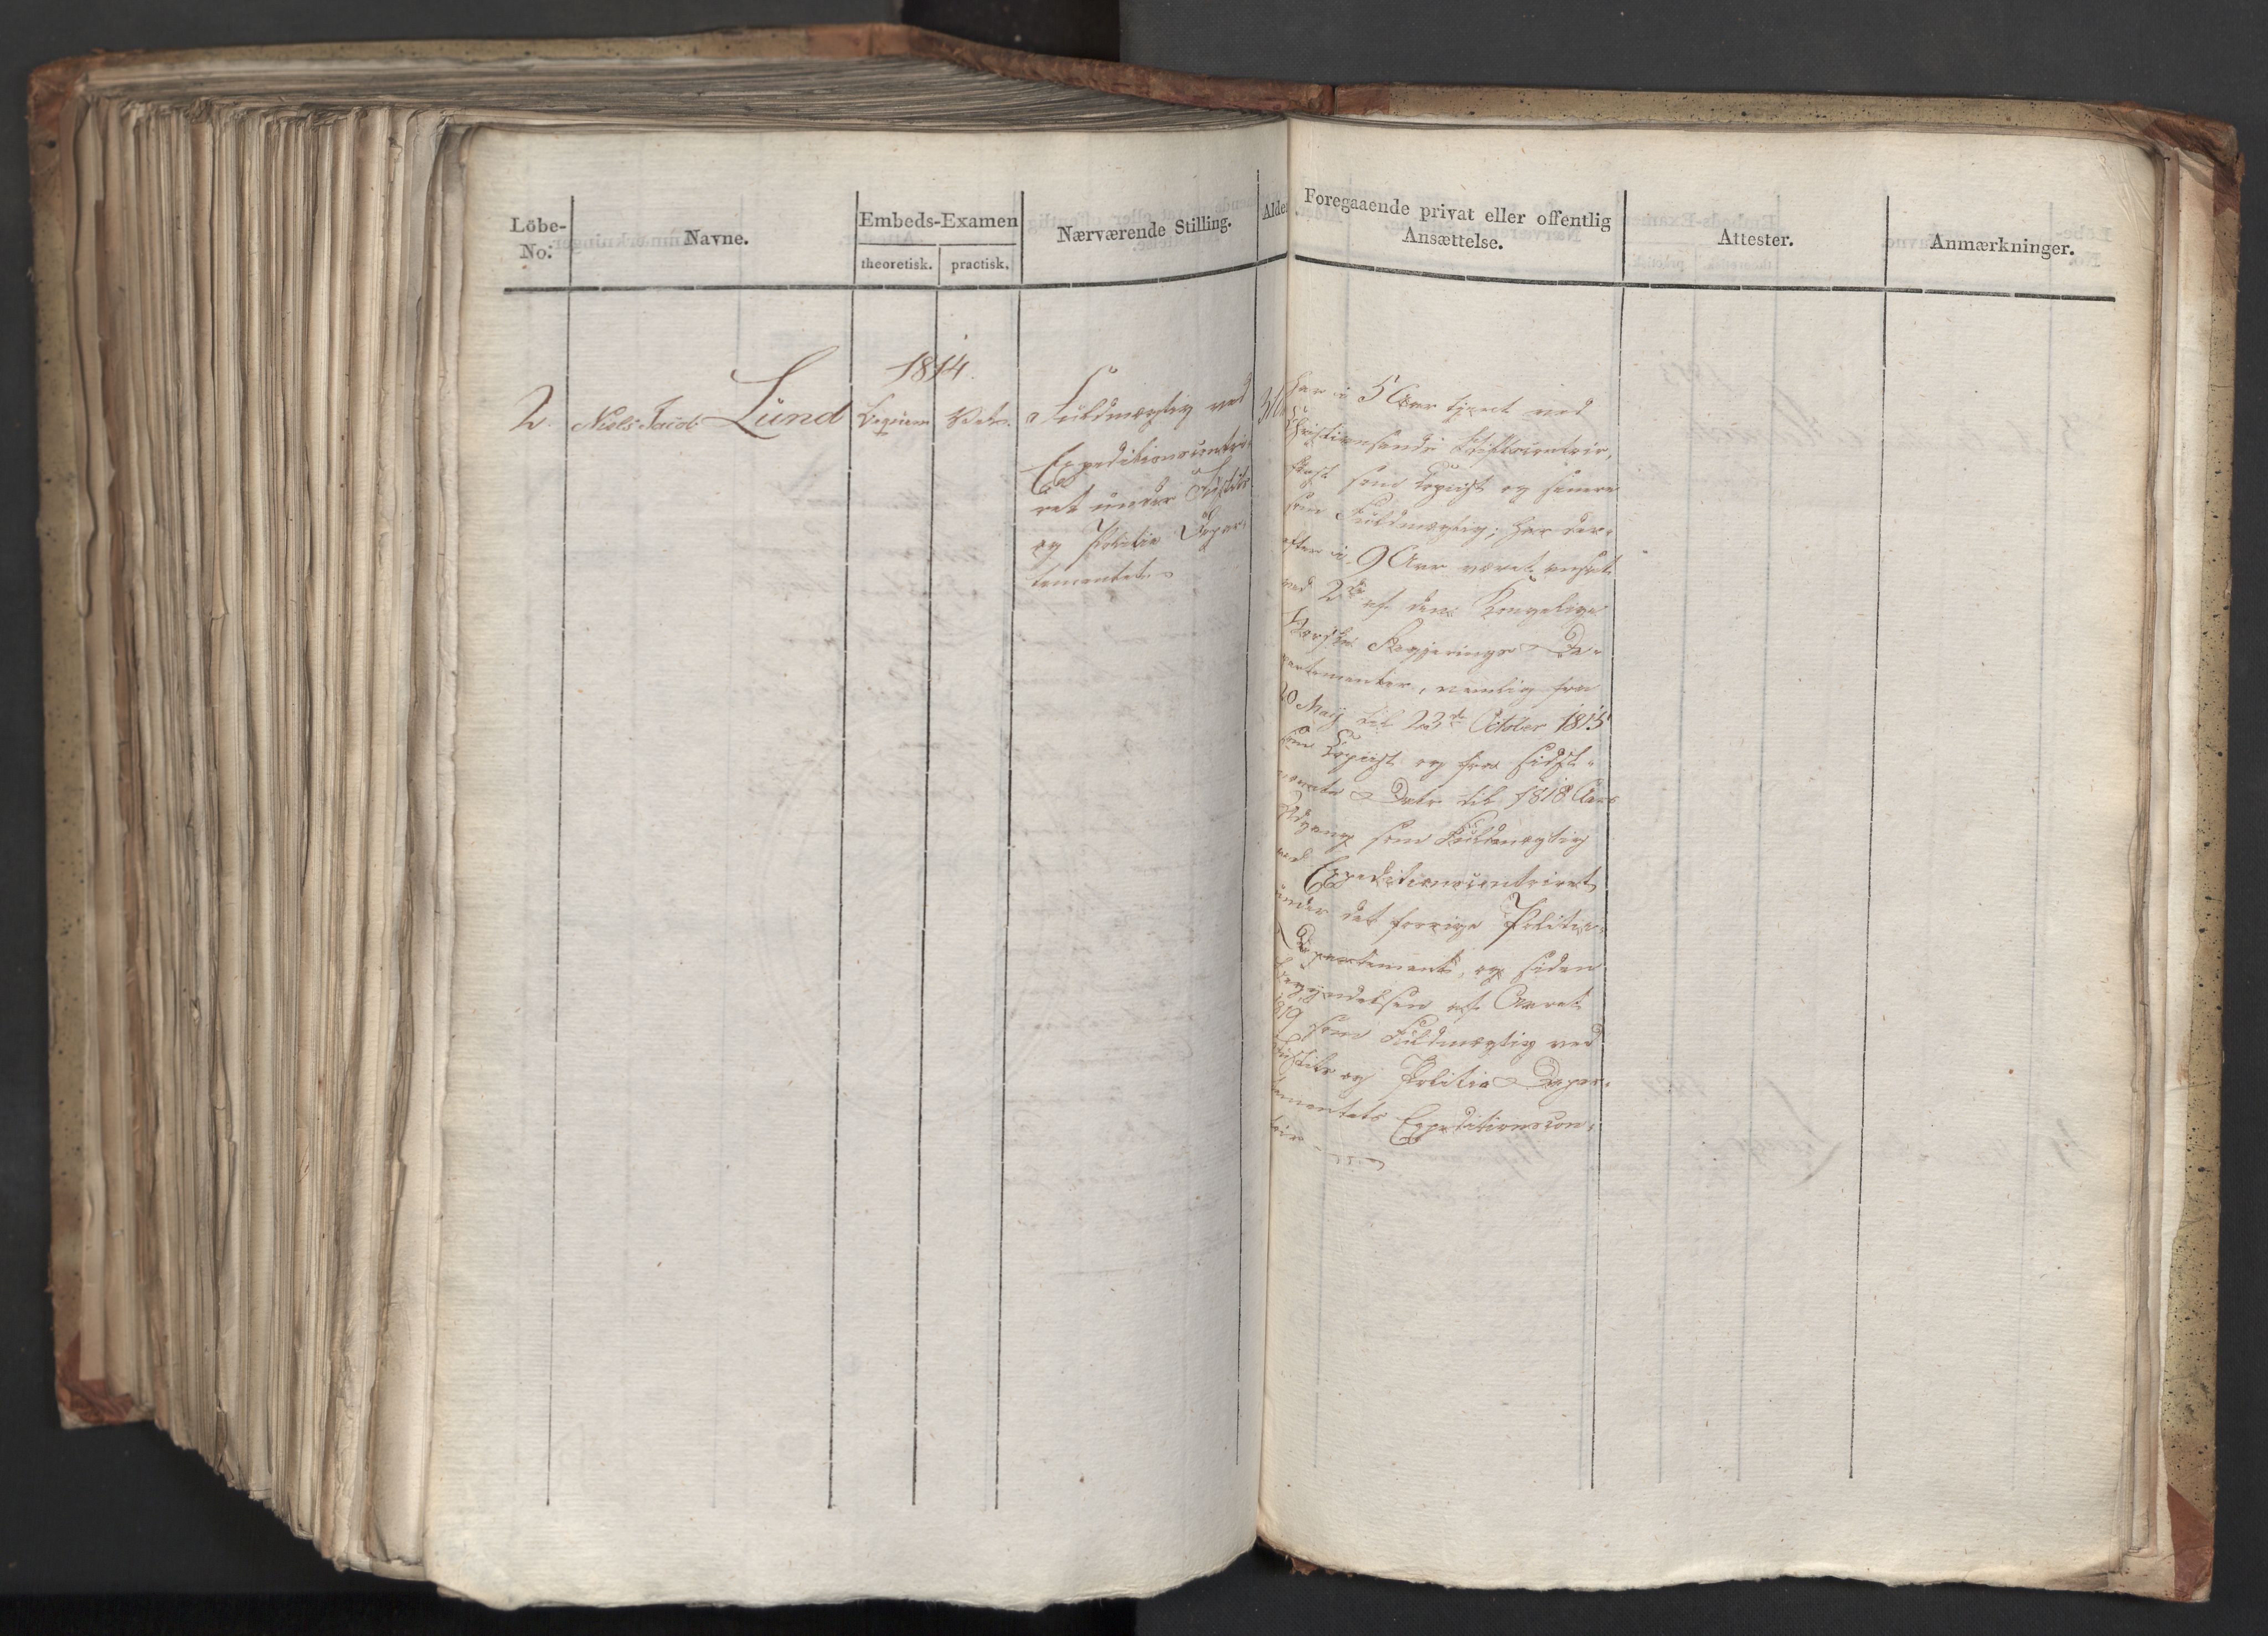 Löbe-No:
Navne.
Embeds-Examen
theoretisk.
practisk.
Nærværende Stilling.
Alder
Foregaaende privat eller offentlig
Ansættelse.
Attester.
Anmærkninger.
1814.
2. Niels Jacob Lund
beqvem
Fuldmægtig ved
Expeditionscontoi-
ret under Justits
og Politie Depar-
tementet.
har i 5 Aar tjent ved
Christiansands Stiftscontoir,
først som Copiist og senere
som Fuldmægtig; har der-
efter i 9 Aar været ansat
ved 2de af den Kongelige
Norske Regjerings De-
partementer, nemlig fra
20 Maij til 23de October 1815
som Copiist og fra sidst-
nævnte Dato til 1818 Aars
Udgang som Fuldmægtig
ved Expeditionscontoiret
under det forrige Politie-
Departement, og siden
Begyndelsen af Aaret
1819 som Fuldmægtig ved
Justits og Politie Depar-
tementets Expeditionscon-
toir